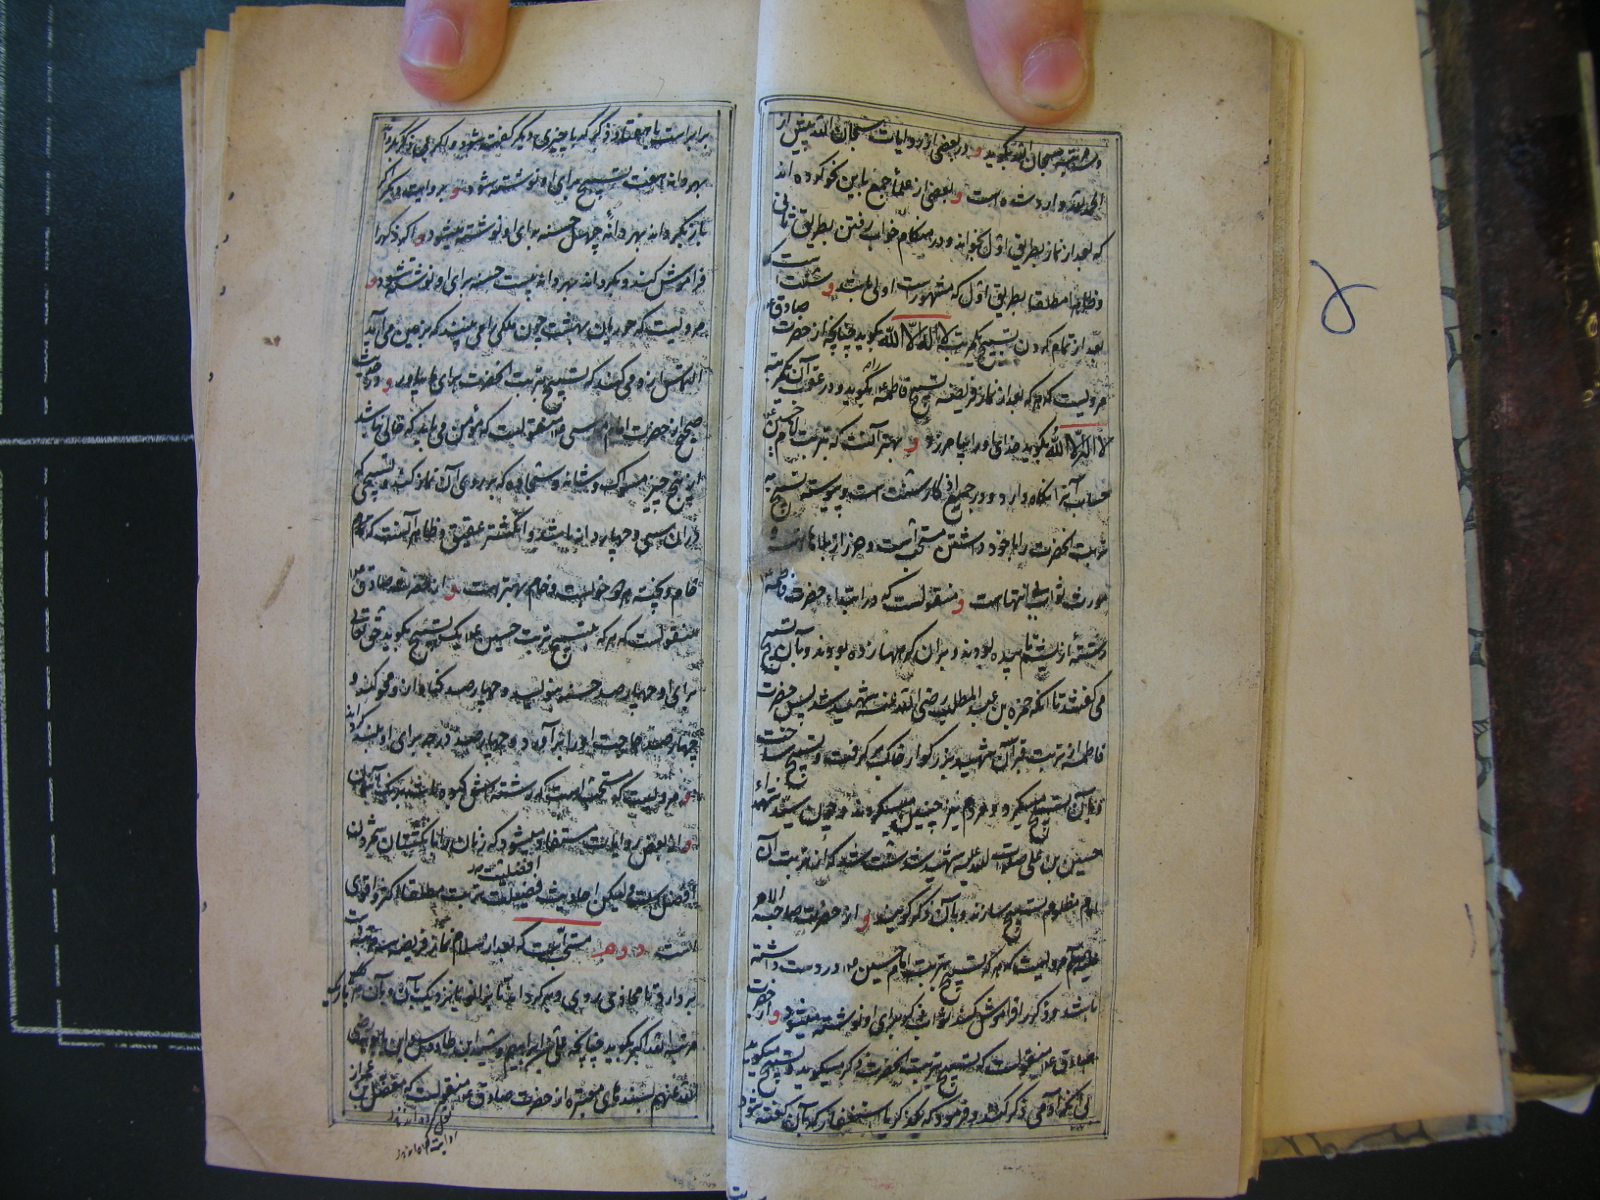 و سه مرتبه سبحان الله بگوید و در بعضی از روایات سبحان الله پیش از
الحمد لله وارد شده است و بعضی از علما جمع باین نحو کرده اند
که بعد از نماز بطریق اول بخواند و در هنگام خواب رفتن بطریق ثانی
و ظاهرا مطلقا بطریق اول که مشهور است اولی باشد و سنت است
بعد از تمام کردن تسبیح یکمرتبه لا اله الا الله بگوید چنانچه از حضرت صادق
مرویست که هر که بعد از نماز فریضه تسبیح فاطمه بگوید و در عقب آن یکمرتبه
لا اله الا الله بگوید خدای او را بیامرزد و بهتر آنست که تربت امام حسین
حساب آنرا نگاه دارد و در جمیع اذکار سنت است و پیوسته تسبیح
تربت آنحضرت را با خود داشتن مستحب است و حرز از بلاهاست و
مورث ثواب بی انتهاست و منقولست که در ابتداء حضرت فاطمه
رشته از پشم تابیده بودند و بر آن گره ها زده بودند و بآن تسبیح
می گفتند تا آنکه حمزه بن عبد المطلب رضی الله عنه شهید شد پس حضرت
فاطمه از تربت قبر آن شهید بزرگوار خاک بر گرفت و تسبیح ساخت
و بآن تسبیح میکرد و مردم نیز چنین میکردند و چون سید شهداء
حسین بن علی صلوات الله علیه شهید شد سنت شد که از تربت آن
امام مظلوم تسبیح سازند و بآن ذکر گویند و از حضرت صاحب الامر
مرویست که هر که تسبیح تربت امام حسین در دست داشته
باشد و ذکر را فراموش کند ثواب ذکر برای او نوشته میشود و از حضرت
صادق منقولست که تسبیح تربت آنحضرت ذکر میگوید و تسبیح میگوید
بی آنکه آدمی ذکر کند و فرمود که یک ذکر یا استغفار که بآن گفته شود
برابر است با هفتاد ذکر که با چیزی دیگر گفته شود و اگر بی ذکر بگرداند
بهر دانه هفت تسبیح برای او نوشته شود و بروایت دیگر اگر
با ذکر بگرداند بهر دانه چهل حسنه برای او نوشته میشود و اگر ذکر را
فراموش کند و بگرداند بهر دانه بیست حسنه برای او نوشته شود و
مرویست که حوریان بهشت چون ملکی را می بینند که بزمین می آید
التماس از او می کنند که تسبیح تربت آنحضرت برای ما بیاور و در حدیث
صحیح از حضرت امام موسی منقولست که مؤمن می باید که خالی نباشد
از پنج چیز مسواک و شانه و سجاده که بر روی آن نماز کند و تسبیحی که
در آن سی و چهار دانه باشد و انگشتر عقیق و ظاهر آنست که
خام و پخته هر دو خوبست و خام بهتر است و از حضرت صادق
منقولست که هر که تسبیح تربت حسین یک تسبیح بگوید حق تعالی
برای او چهار صد حسنه بنویسد و چهار صد گناه از او محو کند و
چهار صد حاجت او را برآورد و چهار صد درجه برای او بلند گرداند
و مرویست که مستحب است که رشته اش کبود باشد
و از بعض روایات مستفاد میشود که زنان را بانگشتان شمردن
افضل است و لیکن احادیث فضیلت تربت مطلقا اکثر و اقوی
افضلیت
است دوم مستحب است که بعد از سلام نماز فریضه سه مرتبه دست
بردارد تا محاذی روی و بر گرداند تا بزانو یا نزدیک بآن
مرتبه الله اکبر بگوید چنانچه علی بن ابراهیم و سید ابن طاوس و ابن بابویه رضی
الله عنهم بسندهای معتبره از حضرت صادق منقولست که مفضل بن عمر از